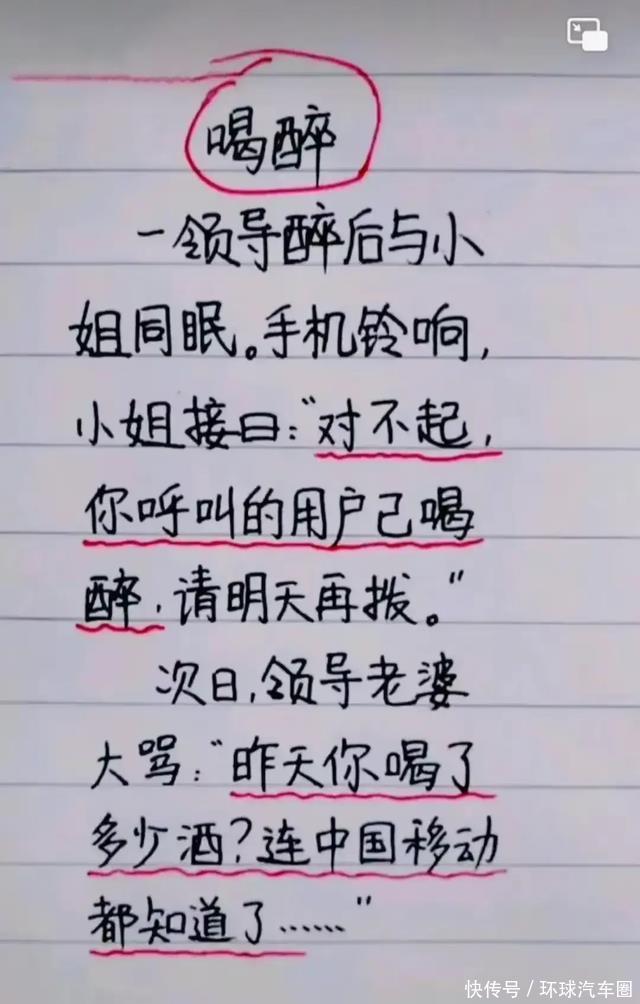 喝醉
一领导醉后与小
姐同眠。手机铃响，
小姐接曰：“对不起，
你呼叫的用户已喝
醉，请明天再拨。”
次日，领导老婆
大骂：“昨天你喝了
多少酒？连中国移动
都知道了……”
快传号／环球汽车圈